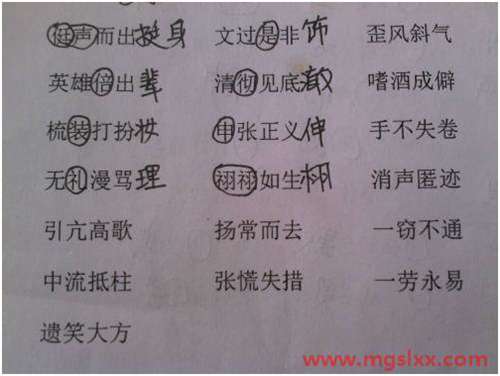 挺声而出 挺身 文过是非 饰 歪风斜气
英雄倍出 辈 清彻见底 澈 嗜酒成僻
梳装打扮 妆 申张正义 伸 手不失卷
无礼漫骂 理 祤祤如生 栩 消声匿迹
引亢高歌 扬常而去 一窃不通
中流抵柱 张慌失措 一劳永易
遗笑大方
www.mgslxx.com